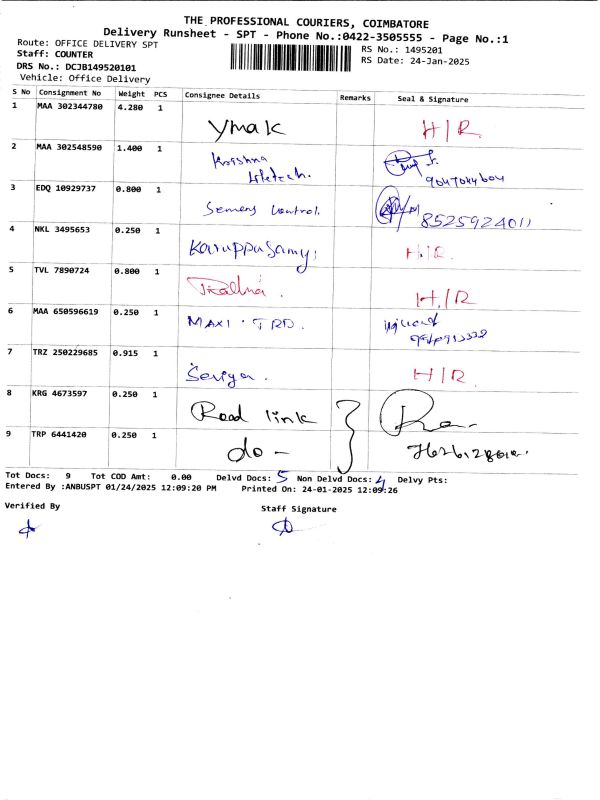 THE PROFESSIONAL COURIERS, COIMBATORE
Delivery Runsheet - SPT - Phone No.:0422-3505555 - Page No.:1
Route: OFFICE DELIVERY SPT
RS No.: 1495201
Staff: COUNTER
RS Date: 24-Jan-2025
DRS No.: DCJB149520101
Vehicle: Office Delivery
S No Consignment No Weight PCS Consignee Details Remarks Seal & Signature
1 MAA 302344780 4.280 1 Ymak H/R
2 MAA 302548590 1.400 1 Krishna
9047044604
3 EDQ 10929737 0.800 1 Semens control. 8525924011
4 NKL 3495653 0.250 1 Karuppusamy H/R
5 TVL 7890724 0.800 1 H/R
6 MAA 650596619 0.250 1 MAXI. TRD.
7 TRZ 250229685 0.915 1 H/R
8 KRG 4673597 0.250 1 Road link
9 TRP 6441420 0.250 1 do -
Tot Docs: 9 Tot COD Amt: 0.00 Delvd Docs: 5 Non Delvd Docs: 4 Delvy Pts:
Entered By :ANBUSPT 01/24/2025 12:09:20 PM Printed On: 24-01-2025 12:09:26
Verified By Staff Signature